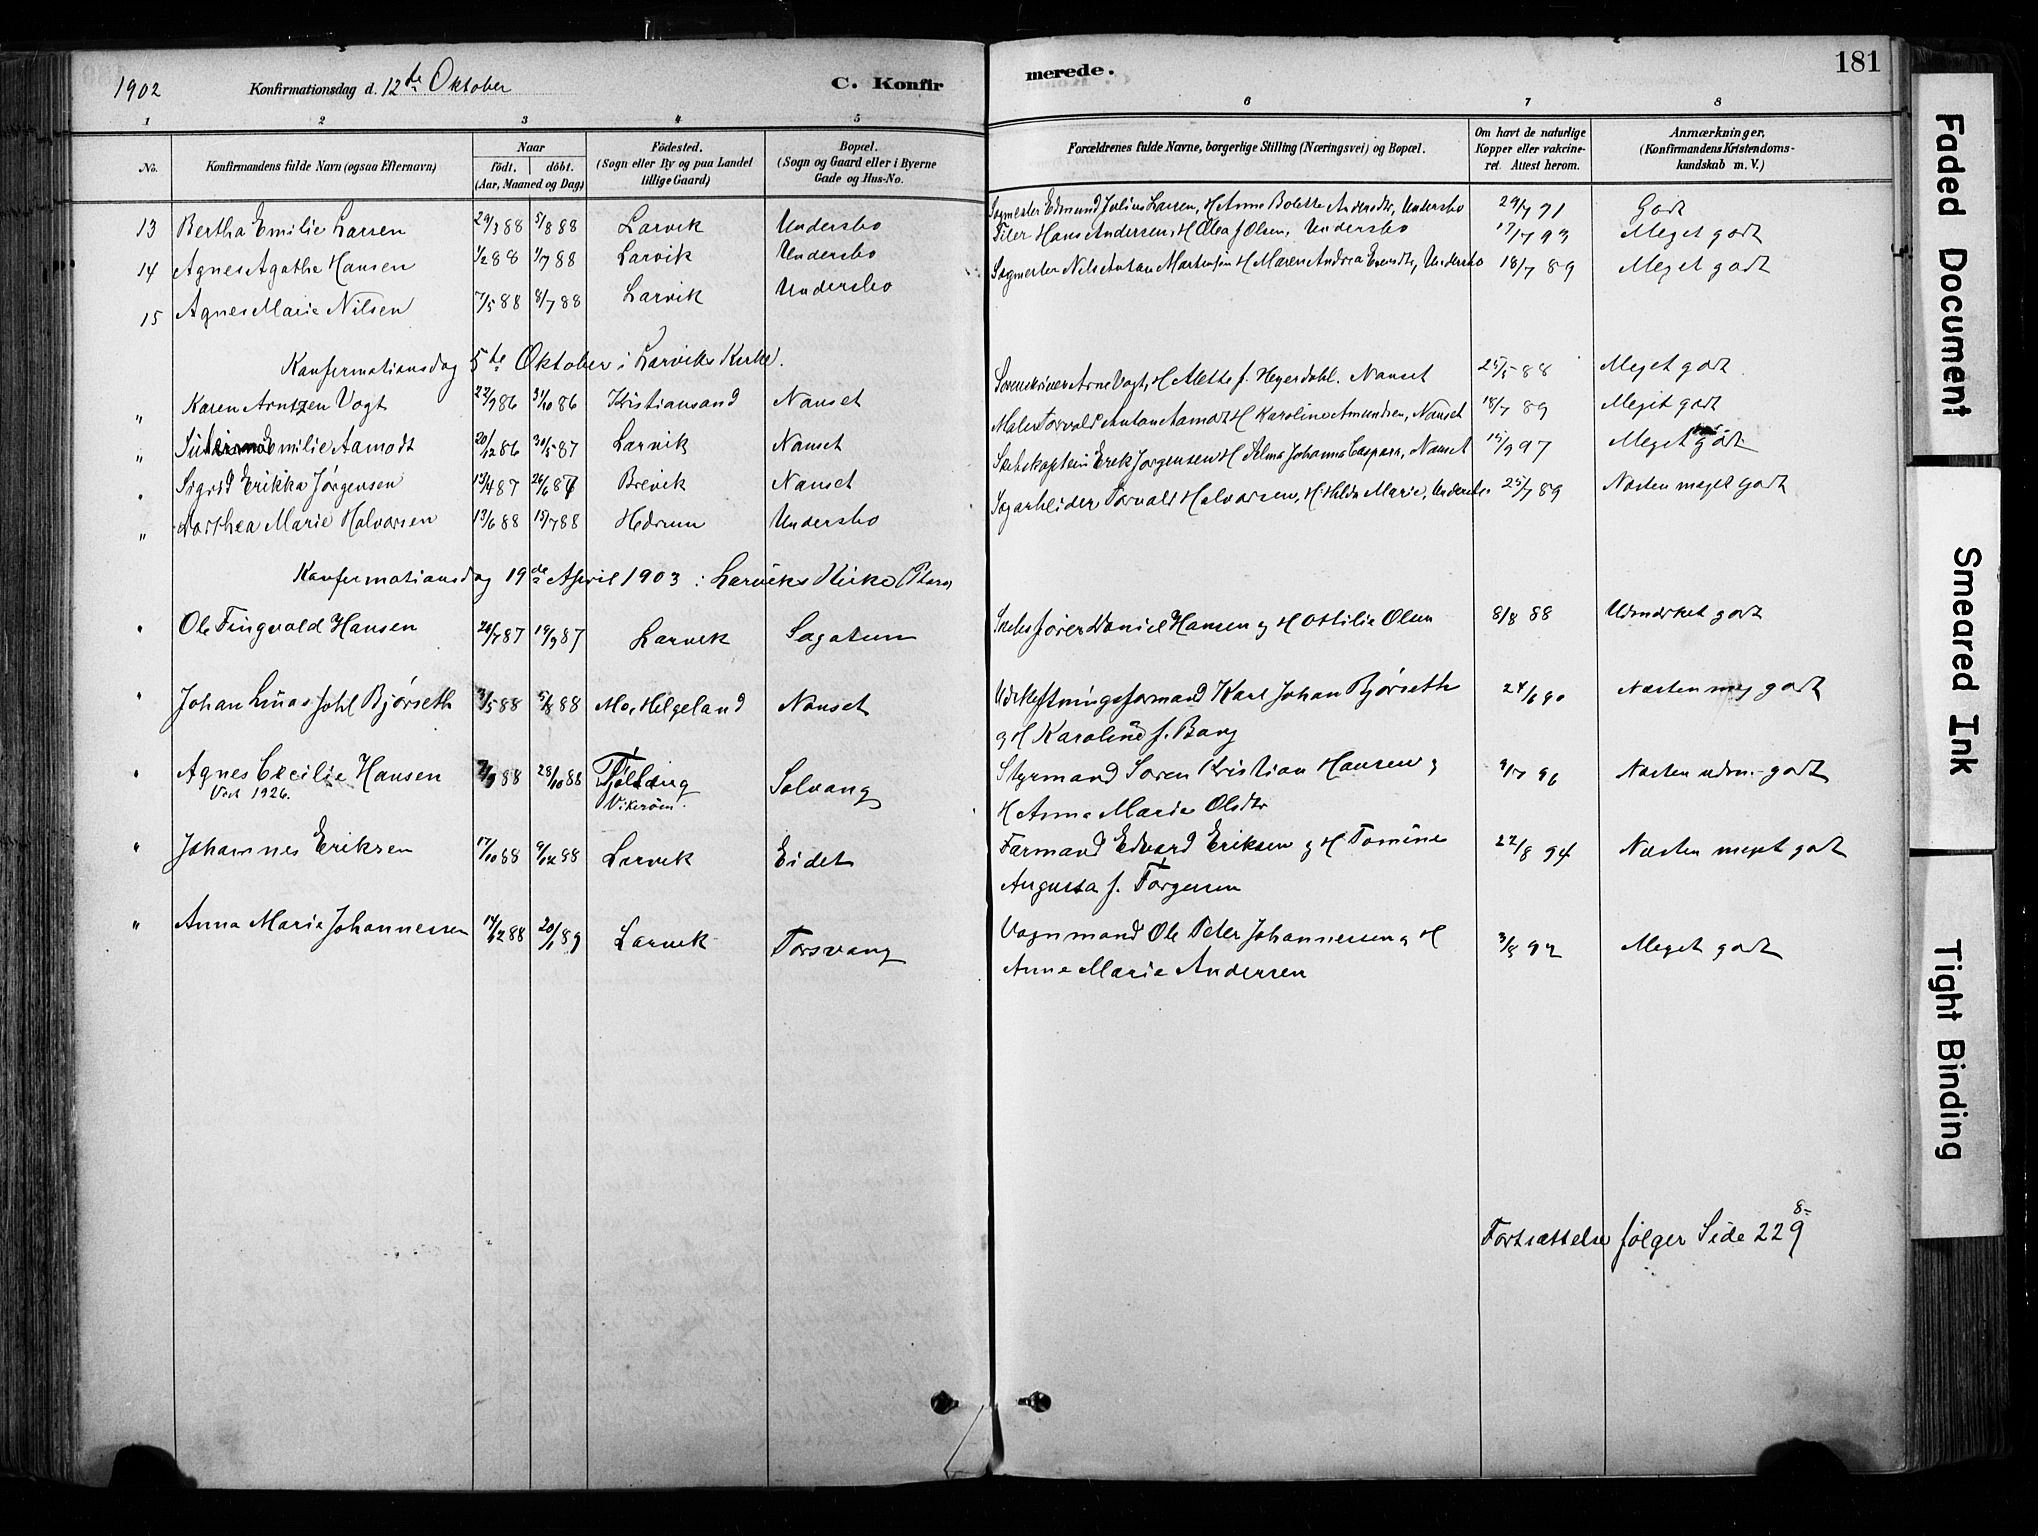 1902 Konfirmationsdag d. 12te Oktober C. Konfir
merede. 181
1 2 3 4 5 6 7 8
No. Konfirmandens fulde Navn (ogsaa Efternavn) Naar født. døbt. (Aar, Maaned og Dag) Fødested. (Sogn eller By og paa Landet tillige Gaard) Bopæl. (Sogn og Gaard eller i Byerne Gade og Hus-No. Forældrenes fulde Navne, borgerlige Stilling (Næringsvei) og Bopæl. Om havt de naturlige Kopper eller vakcineret. Attest herom. Anmærkninger, (Konfirmandens Kristendomskundskab m. V.)
13 Bertha Emilie Larsen 29/3 88 5/8 88 Larvik Undersbo Sagmester Edmund Julius Larsen, H Anne Bolette Andersdtr, Undersbo 29/7 91 Godt
14 Agnes Agathe Hansen 1/2 88 1/7 88 Larvik Undersbo Filer Hans Andersen, H Olea f Olsen, Undersbo 17/7 93 Meget godt
15 Agnes Marie Nilsen 7/5 88 8/7 88 Larvik Undersbo Sagmester Nils Antan Martinsen H Maren Andrea Evendtr, Undersbo 18/7 89 Meget godt
Konfermationsdag 5te Oktober i Larviks Kirke.
" Karen Arntzen Vogt 22/9 86 31/10 86 Kristiansand Nanset Sorenskriver Arne Vogt, H Alette f. Heyerdahl. Nanset 25/5 88 Meget godt
" Emilie Aamodt 20/12 86 30/5 87 Larvik Nanset Maler Torvald Antan Aamodt H Karoline Amundsen, Nanset 18/7 89 Meget godt
" Sigrid Erikka Jørgensen 13/4 87 26/6 87 Brevik Nanset Skibskaptein Erik Jørgensen H Alma Johanna Caspara, Nanset 15/9 97 Meget godt
" Dorthea Marie Halvorsen 13/6 88 15/7 88 Hedrum Undersbo Sagarbeider Torvald Halvorsen, H Hilda Marie, Undersbo 25/7 89 Næsten meget godt
Konfermationsdag 19de April 1903 i Larviks Kirke
" Ole Tingvald Hansen 20/7 87 19/9 87 Larvik Sagatun Skibsfører Daniel Hansen og H Ottilie Olsen 8/8 88 Udmærket godt
" Johan Linas Johl Bjørseth 3/5 88 5/8 88 Mo, Helgeland Nanset Udskiftningsformand Karl Johan Bjørseth 24/6 90 Næsten meg godt
og H Karoline f. Bang
" Agnes Cecilie Hansen 2/9 88 28/10 88 Tjølling Solvang Styrmand Soren Kristian Hansen og 9/7 96 Næsten udm. godt
Vikerøen.
H Anna Marie Olsdtr
" Johannes Eriksen 17/10 88 9/12 88 Larvik Eidet Formand Edvard Eriksen og H Tomine 22/8 94 Næsten meget godt
Augusta f. Torgersen
" Anna Marie Johannessen 14/12 88 20/1 89 Larvik Torsvang Vognmand Ole Peter Johannessen og H 3/8 92 Meget godt
Anne Marie Andersen
Fortsættelse følger Side 229
Faded Document
Smeared Ink
Tight Binding